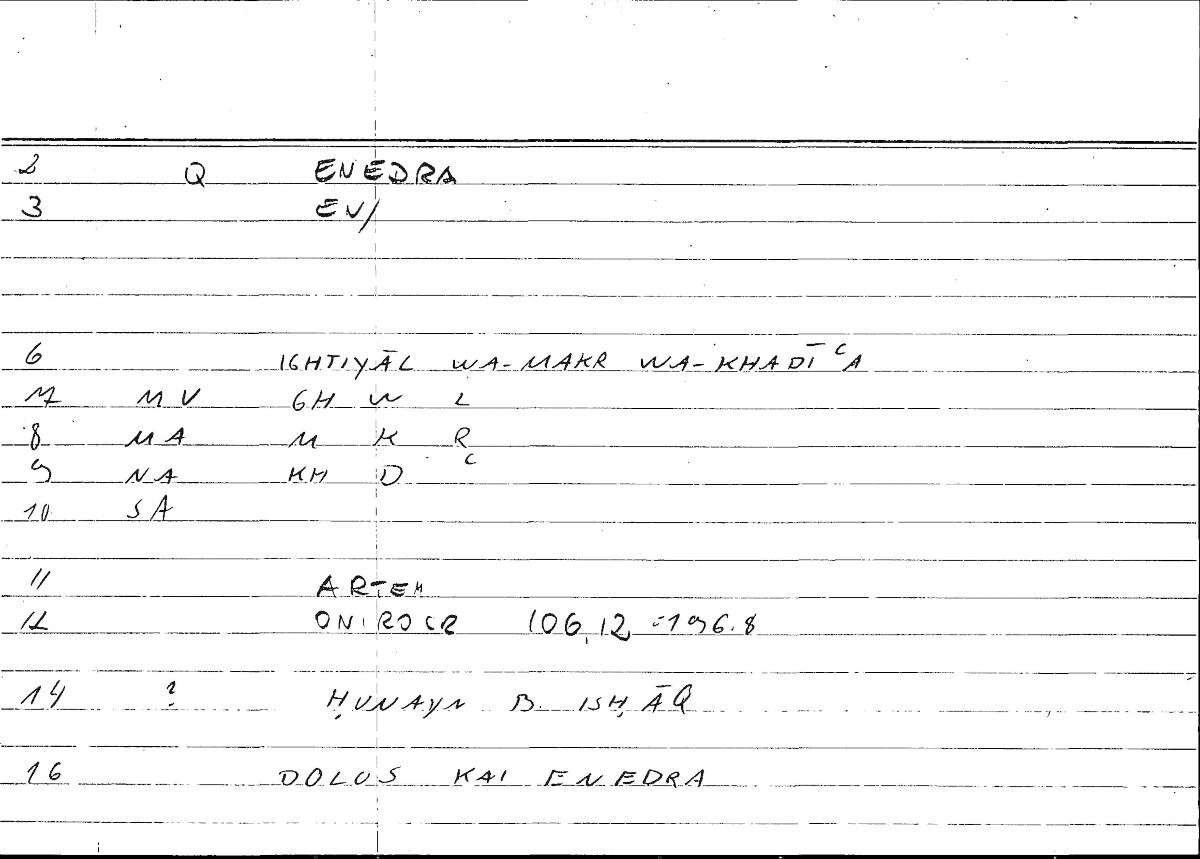 2 Q ENEDRA
3 EN/
6 IGHTIYĀL WA-MAKR WA-KHADĪʿA
7 MV GH W L
8 MA M K R
9 NA KH D ʿ
10 SA
11 ARTEM
12 ONIROCR 106,12 = 196.8
14 ? ḤUNAYN B. ISḤĀQ
16 DOLOS KAI ENEDRA